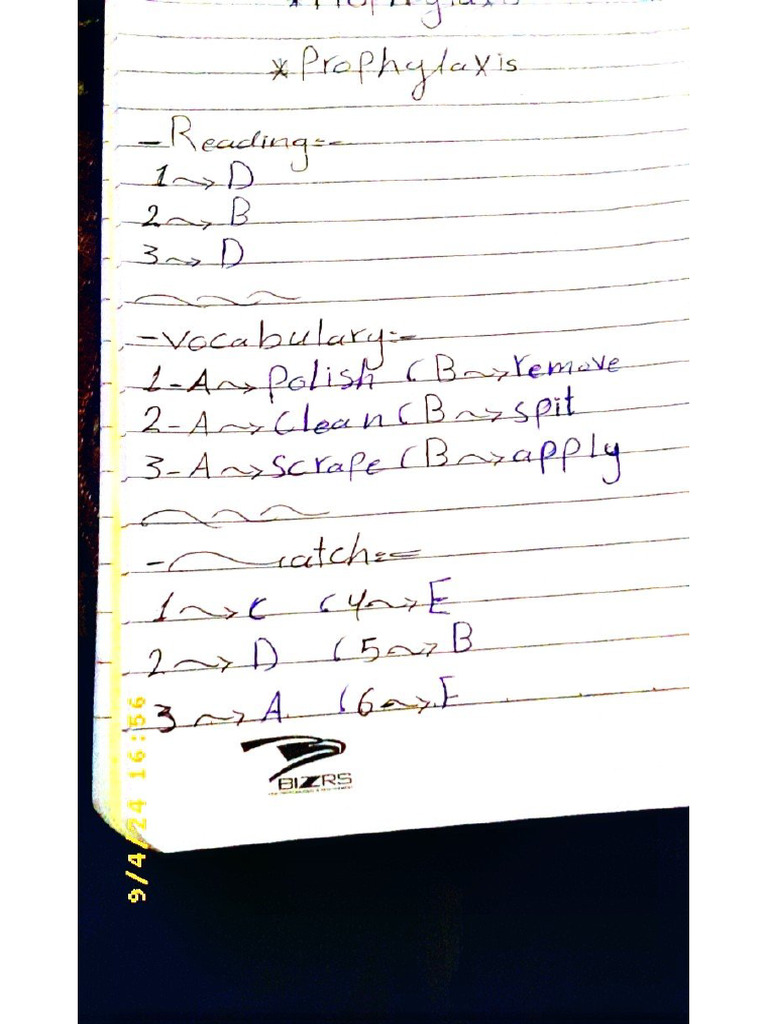 *Prophylaxis
- Reading:-
1 → D
2 → B
3 → D
- Vocabulary:-
1- A → Polish ( B → remove
2- A → Clean ( B → spit
3- A → Scrape ( B → apply
1 → C ( 4 → E
2 → D ( 5 → B
3 → A ( 6 → F
BIZRS
9/4/24 16:56